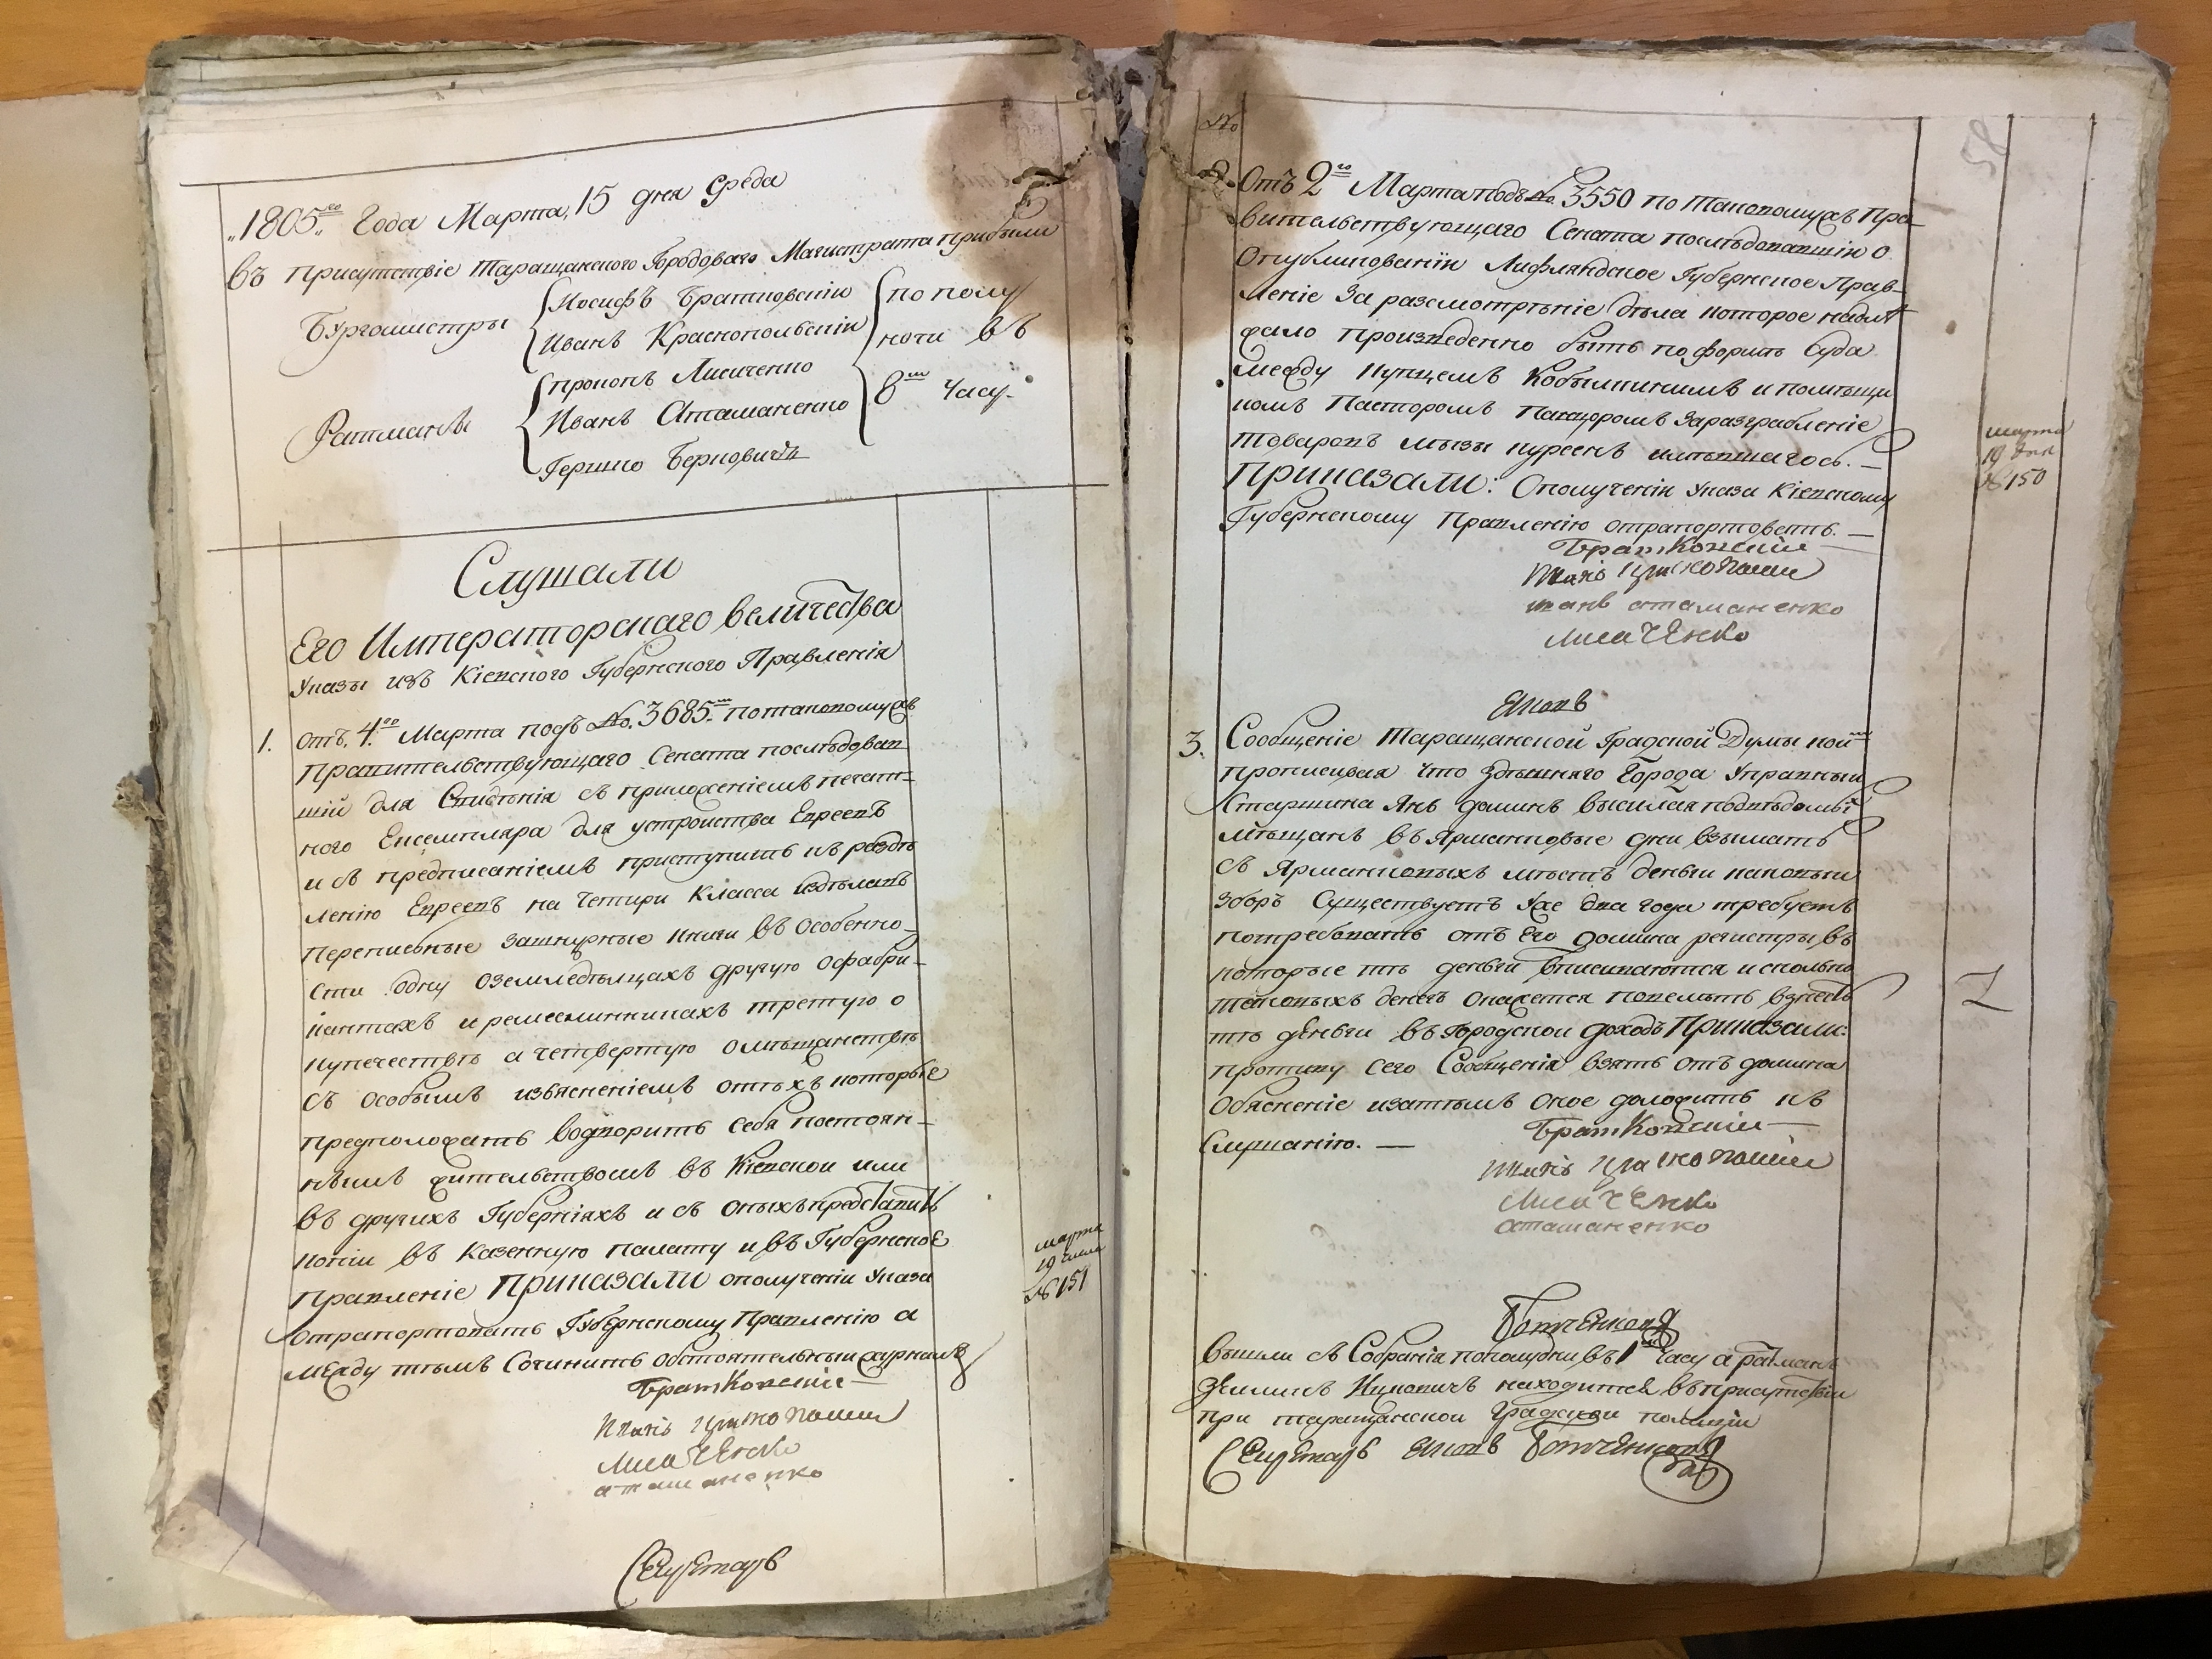 "1805го" Года Марта, 15 дня Среда
Въ присутствіе Таращанского Городоваго Магистрата прибыли
Бургомистры
Иосифъ Братковскій
Иванъ Краснопольскій
Ратманы
Прокопъ Лисиченко
Иванъ Атаманенко
Гершко Берковичъ
по полу
ночи въ
8м часу.
Слушали
Его Императорскаго величества
Указы изъ Кіевского Губернского Правленія
1. отъ 4го Марта подъ No. 3685м по таковому жъ
Правительствующаго Сената последовав
шій для Сведенія съ приложеніемъ печат-
ного Ексемпляра для устройства Евреевъ
и съ предписаніемъ приступить къ разде
ленію Евреевъ на четыри класса изделавъ
переписные зашнурные книги въ особенно-
сти одну о земледельцахъ другую о фабри-
кантахъ и ремесленникахъ третую о
купечестве а четвертую о мещанстве
съ особымъ изъясненіемъ о техъ которые
предположатъ водворить себя постоян-
нымъ жительствомъ въ Кіевской или
въ другихъ Губерніяхъ и съ оныхъ представить
копіи въ Казенную палату и въ Губернское
правленіе Приказали о полученіи Указа
отрапортовать Губернскому Правленію а
между темъ Сочинить обстоятельный журналъ
марта
19
№ 151
Братковскій
Иванъ Краснополскій
Лисиченко
атаманенко
Секретарь
No
2. Отъ 2го Марта подъ No. 3550 по таковому жъ Пра-
вительствующаго Сената последовавшій о
опубликованіи Лифляндское Губернское Прав-
леніе за разсмотреніе дела которое надле
жало произведенно быть по форме Суда
между купцемъ Кобылкинымъ и помещи
комъ Пасторомъ за разграбленіе
товаровъ мызы
Приказали: о полученіи Указа Кіевскому
Губернскому Правленію отрапортовать. —
марта
19 дня
№ 150
Братковскій
Иванъ Краснополскій
иванъ атаманенко
Лисиченко
Яковъ
3. Сообщеніе Таращанской Градской Думы кой
прописивая что здешнего Города Управный
Старшина Янъ долинъ высилая подведомы
мещанъ въ Ярмарковые дни взымать
съ Ярмарковыхъ местъ деньги каковый
зборъ Существуетъ уже два года требуетъ
потребовать отъ его долина регистры въ
которые те деньги вписиваются и сколько
таковыхъ денегъ окажется повелеть взнесть
те деньги въ городской доходъ Приказали:
противу сего Сообщенія взять отъ долина
объясненіе и затемъ оное доложить къ
Слушанію. —
Братковскій
Иванъ Краснополскій
Лисиченко
атаманенко
вышли съ Собранія по полудни въ 1м часу а ратманъ
Ицковичъ находится въ присутствіи
при таращанской Градской полиціи
Секретарь Яковъ